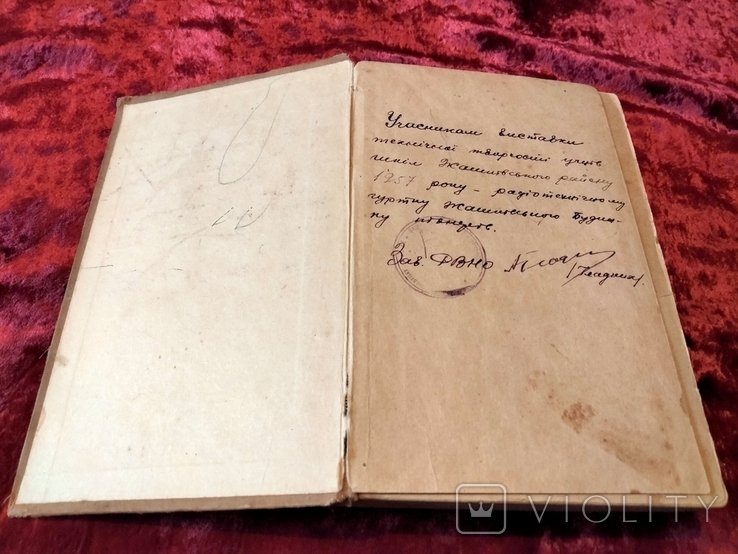 Учасникам виставки
технічної творчості учнів
шкіл Жашківського району
1957 року - радіотехнічному
гуртку Жашківського Будин-
ку піонерів.
Зав. РВНО
VIOLITY